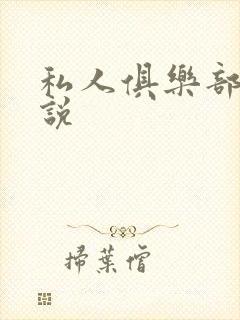 私人俱樂部
說
掃葉僧